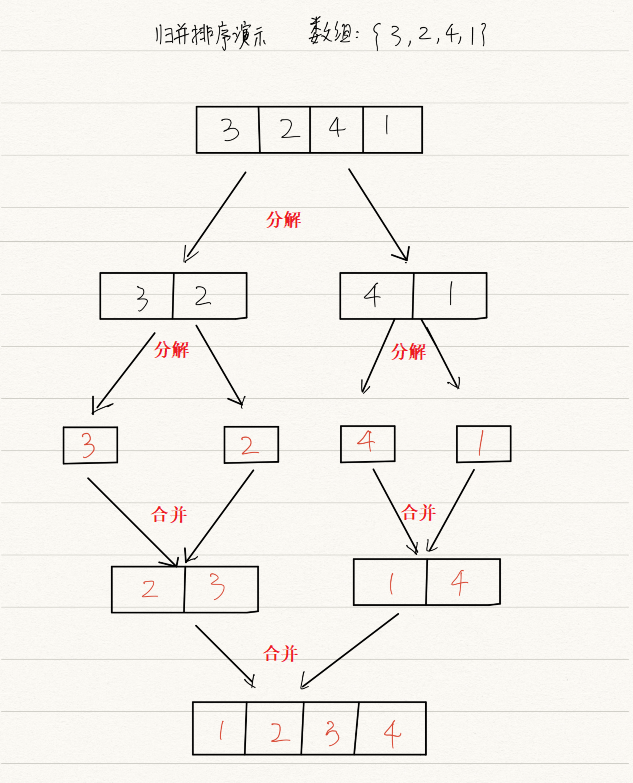 归并排序演示 数组:{3,2,4,1}
3 2 4 1
分解
3 2 4 1
分解 分解
3 2 4 1
合并 合并
2 3 1 4
合并
1 2 3 4